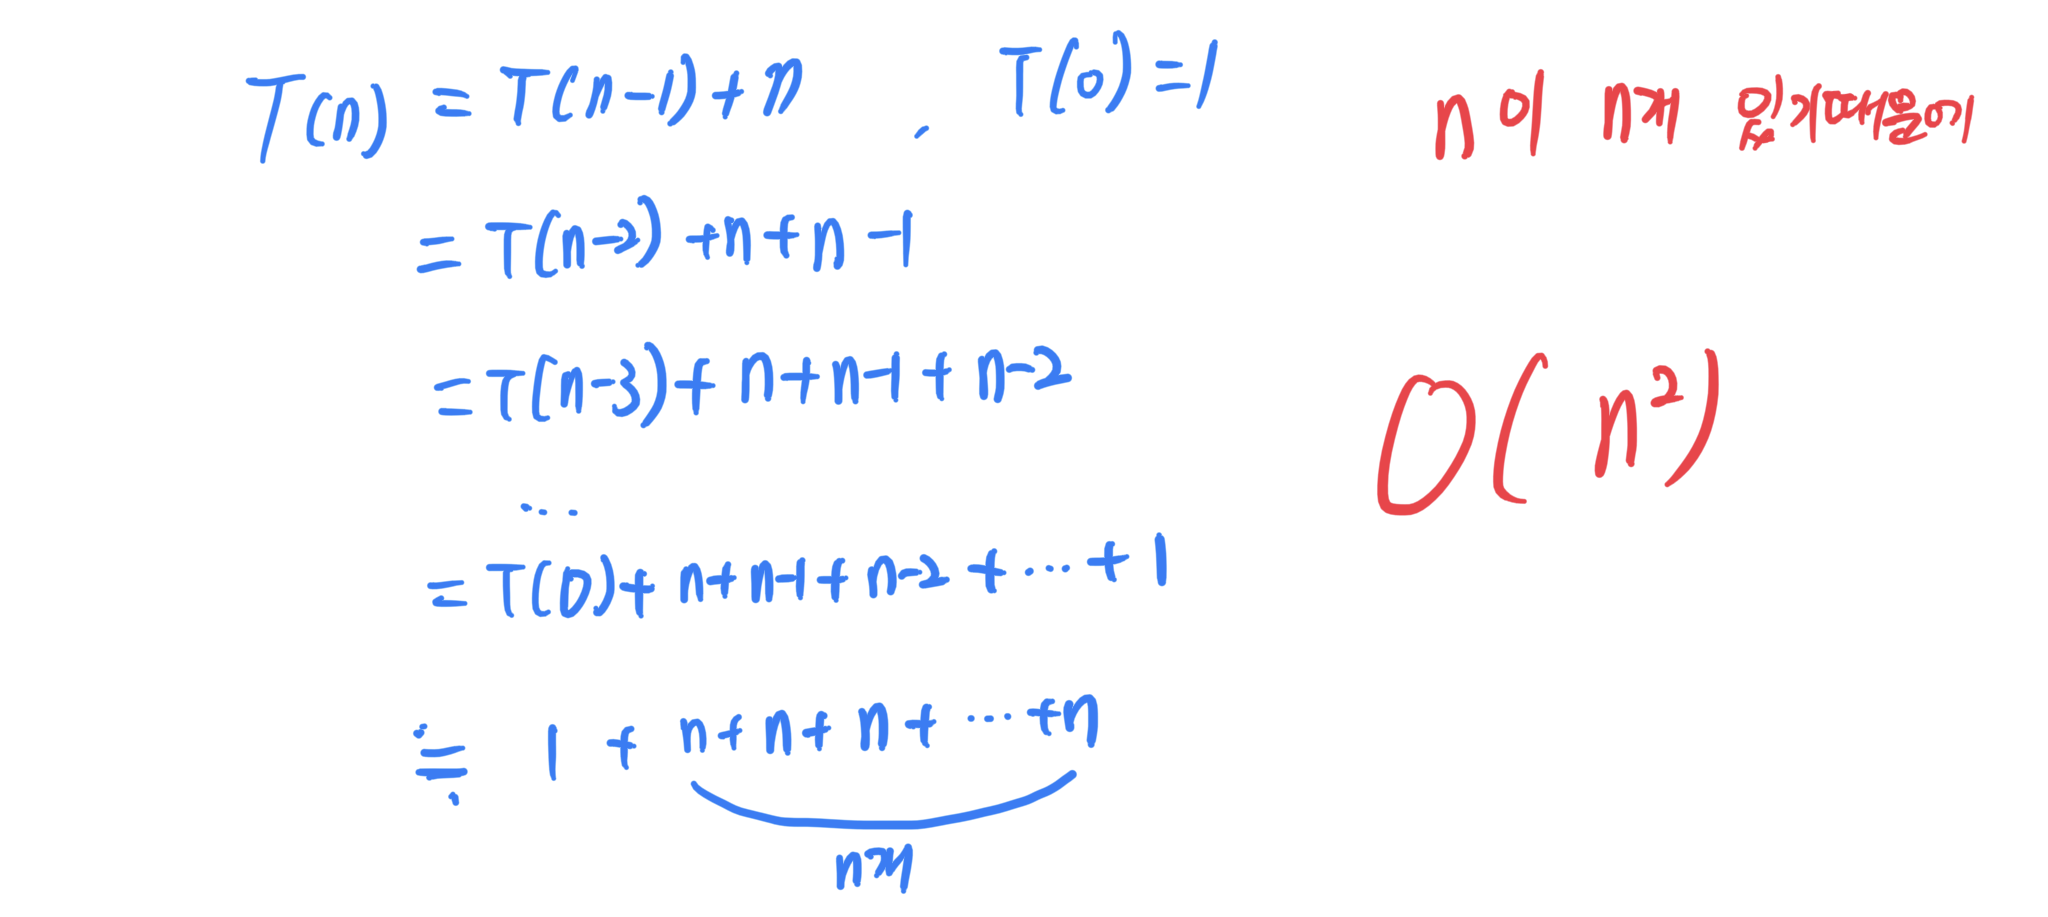 T(n) = T(n-1) + n , T(0) = 1
= T(n-2) + n + n - 1
= T(n-3) + n + n-1 + n-2
...
= T(0) + n + n-1 + n-2 + ... + 1
≒ 1 + n + n + n + ... + n
n개
n이 n개 있기때문에
O(n²)